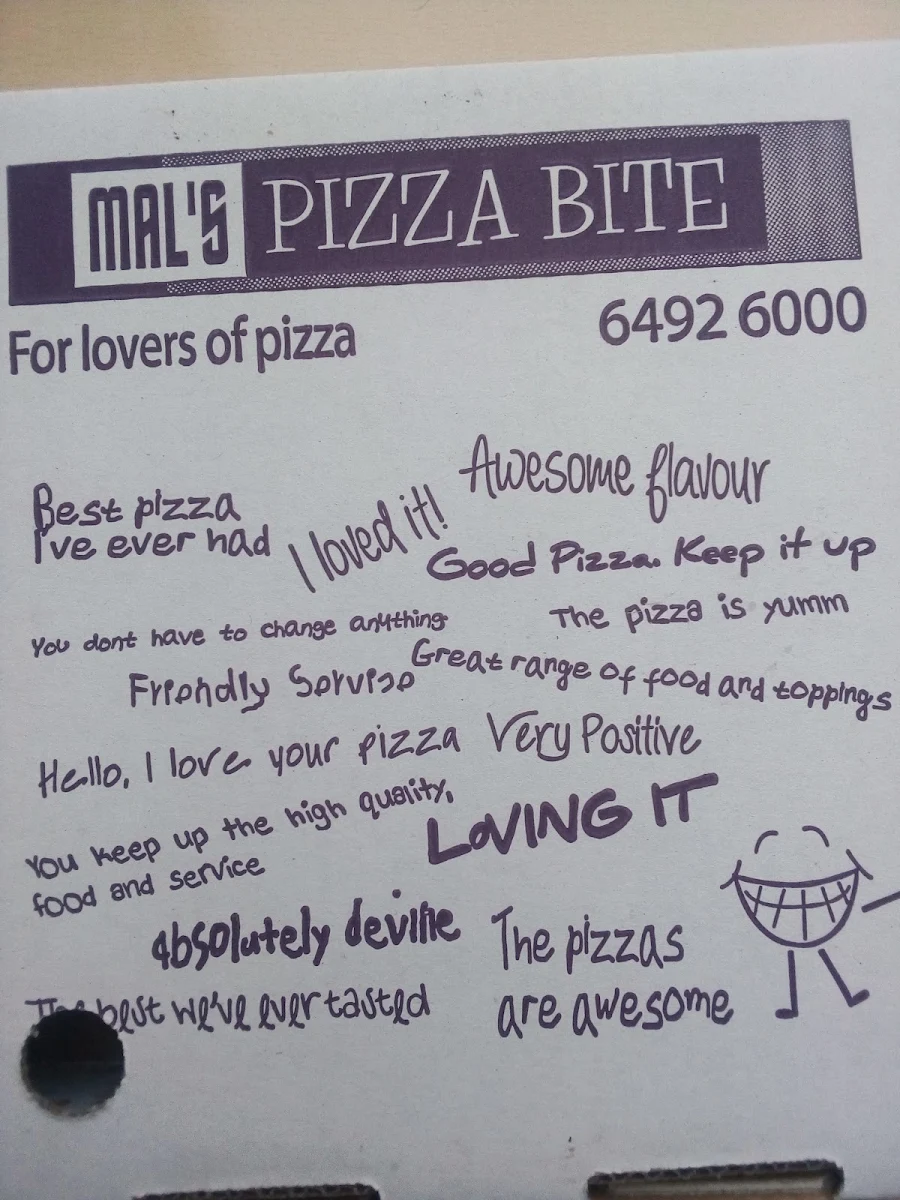 MAL'S PIZZA BITE
For lovers of pizza
6492 6000
Awesome flavour
Best pizza
I've ever had
I loved it!
Good Pizza. Keep it up
The pizza is yumm
You dont have to change anything
Great range of food and toppings
Friendly Service
Hello, I love your pizza
Very Positive
You keep up the high quality,
food and service
LOVING IT
Absolutely devine
The pizzas
are awesome
The best we've ever tasted